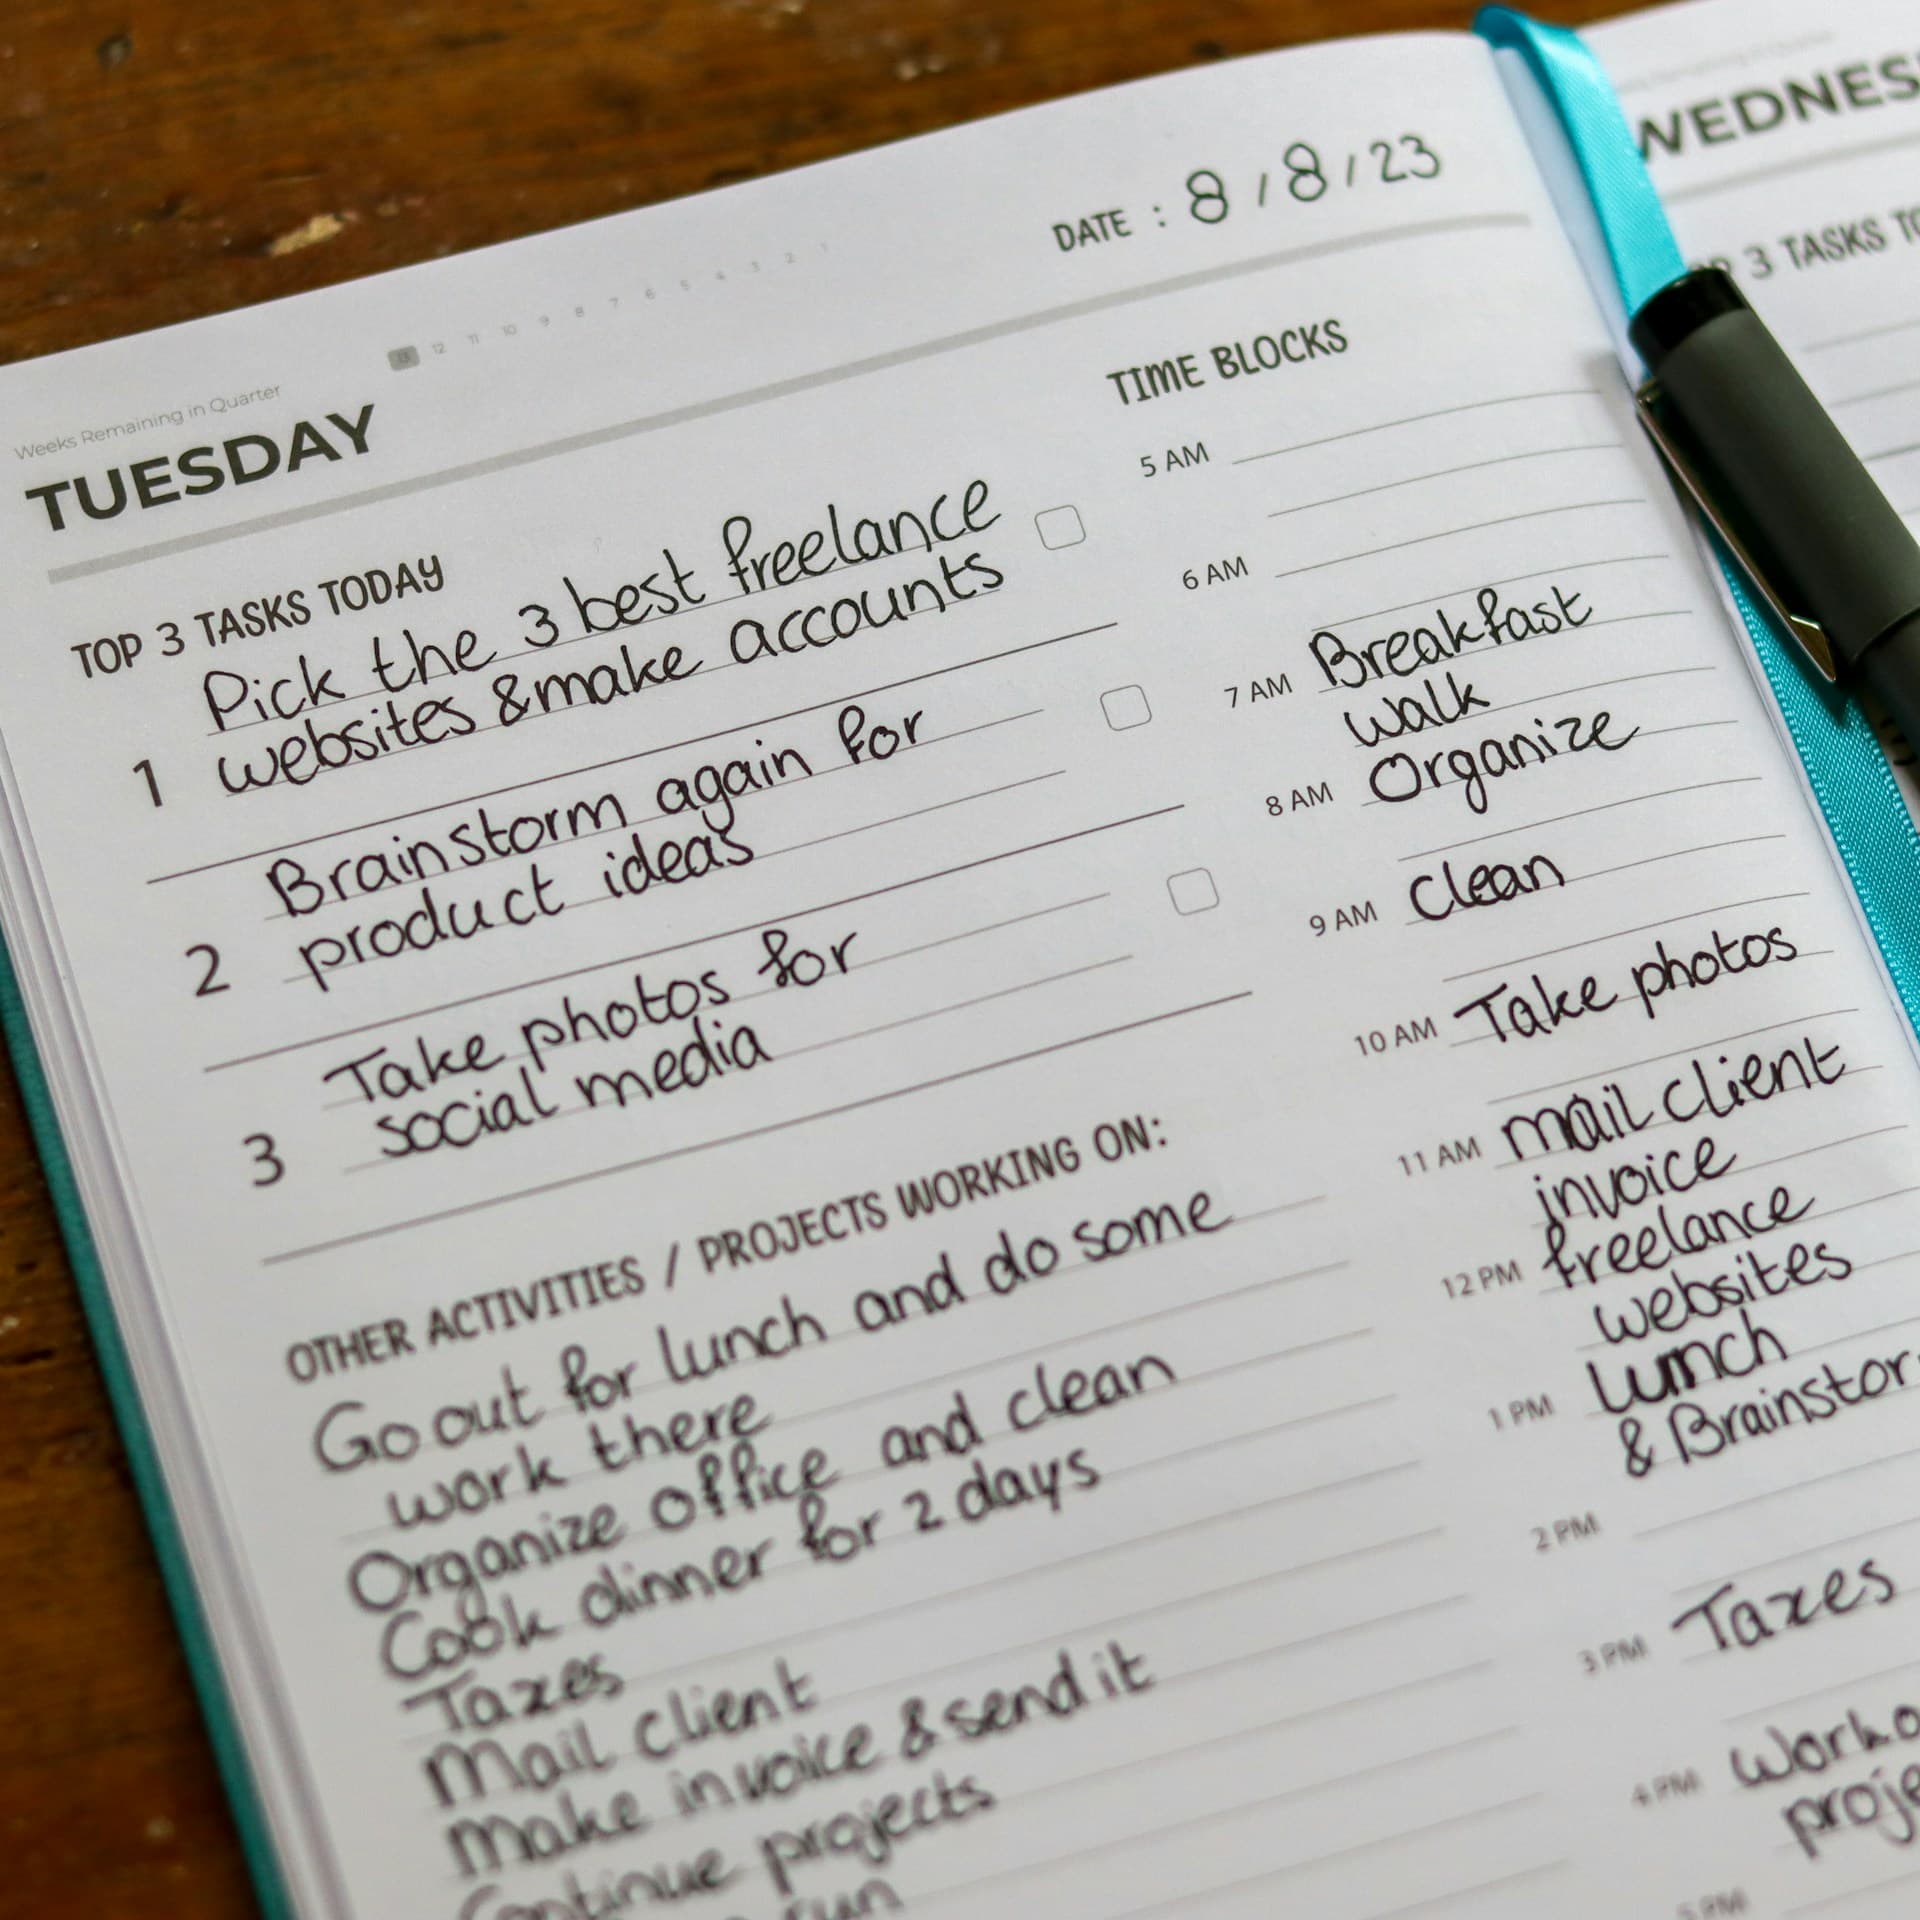 Weeks Remaining in Quarter
13 12 11 10 9 8 7 6 5 4 3 2 1
TUESDAY
DATE : 8/8/23
TOP 3 TASKS TODAY
1 Pick the 3 best freelance
websites & make accounts
2 Brainstorm again for
product ideas
3 Take photos for
social media
OTHER ACTIVITIES / PROJECTS WORKING ON:
Go out for lunch and do some
work there
Organize office and clean
Cook dinner for 2 days
Taxes
Mail client
Make invoice & send it
Continue projects
run
TIME BLOCKS
5 AM
6 AM
7 AM Breakfast
walk
8 AM Organize
9 AM Clean
10 AM Take photos
11 AM mail client
invoice
12 PM freelance
websites
1 PM Lunch
& Brainstor
2 PM
3 PM Taxes
4 PM Work o
proje
5 PM
WEDNES
3 TASKS TO